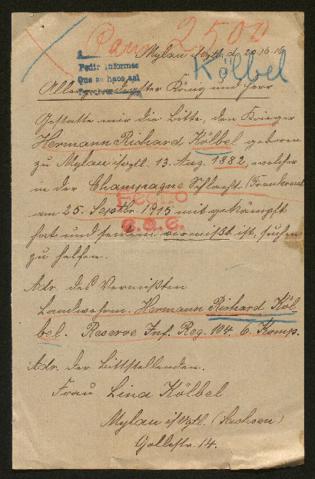 2500
Mylau i/Vgtl. d. 20.10.16
Pedir informes
Que se hace asi
Kölbel
König und Herr
Gestatte mir die Bitte, den Krieger
Hermann Richard Kölbel geboren
zu Mylau i/Vgtl. 13. Aug. 1882, welcher
in der Champagne Schlacht (Frankreich)
HECHO
am 25. Septbr. 1915 mit gekämpft
hat und seitdem vermißt ist, suchen
zu helfen.
Adr. des Vermißten
Landwehrm. Hermann Richard Köl-
bel. Reserve Inf. Reg. 104. 6. Komp.
Adr. der Bittstellenden.
Frau Lina Kölbel
Mylau i/Vgtl. (Sachsen)
14.